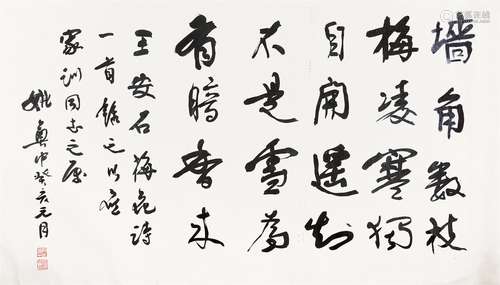 墙角數枝
梅凌寒獨
自開遥知
不是雪為
有暗香来
王安石梅花诗
一首録之以应
家训同志之属
姚奠中癸亥元月